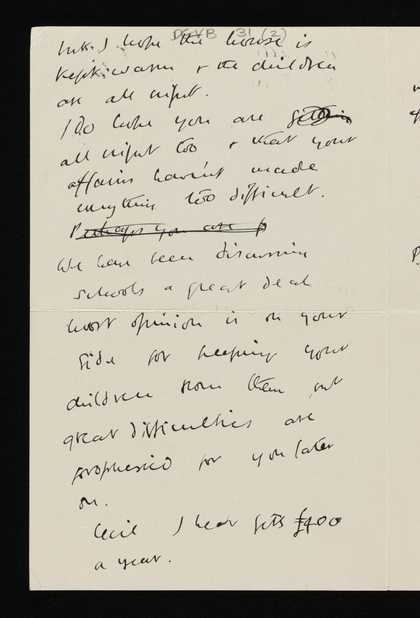 I hope the house is
kept warm & the children
are all right.
I do hope you are
all right too & that your
affairs haven't made
everything too difficult.
Perhaps you are
We have been discussing
schools a great deal
most opinion is on your
side for keeping your
children from them but
great difficulties are
prophesied for you later
on.
Cecil I hear gets £400
a year.